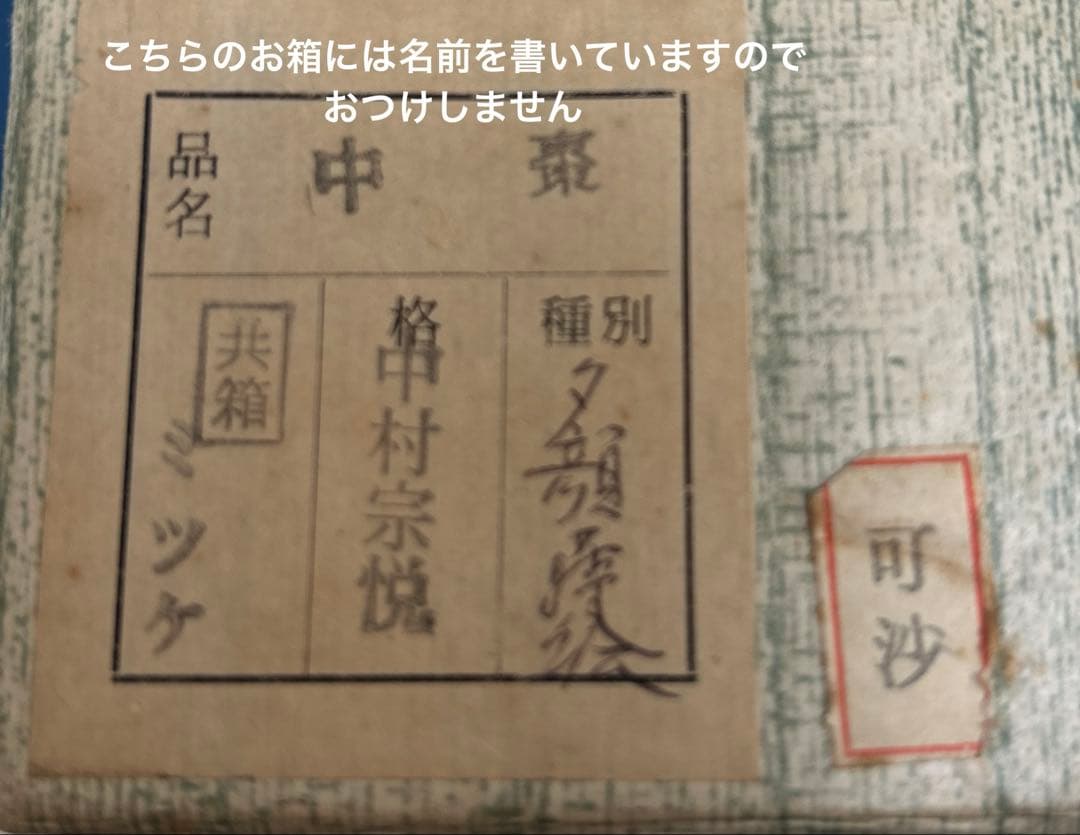 こちらのお箱には名前を書いていますので
おつけしません
品名
中 棗
種別
夕顔蒔絵
格
中村宗悦
共箱
ミツケ
可沙